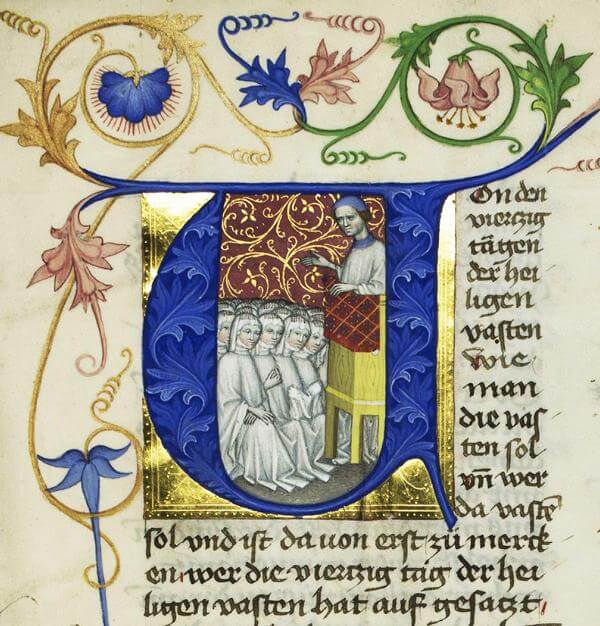 VOn den
vierczig
tägen
der hei
ligen
vasten
wie
man
die vas
ten sol
vn̄ wer
da vastē
sol vnd ist da von erst zů merck
en, wer die vierczig tåg der hei
ligen vasten hat auf gesatzt,